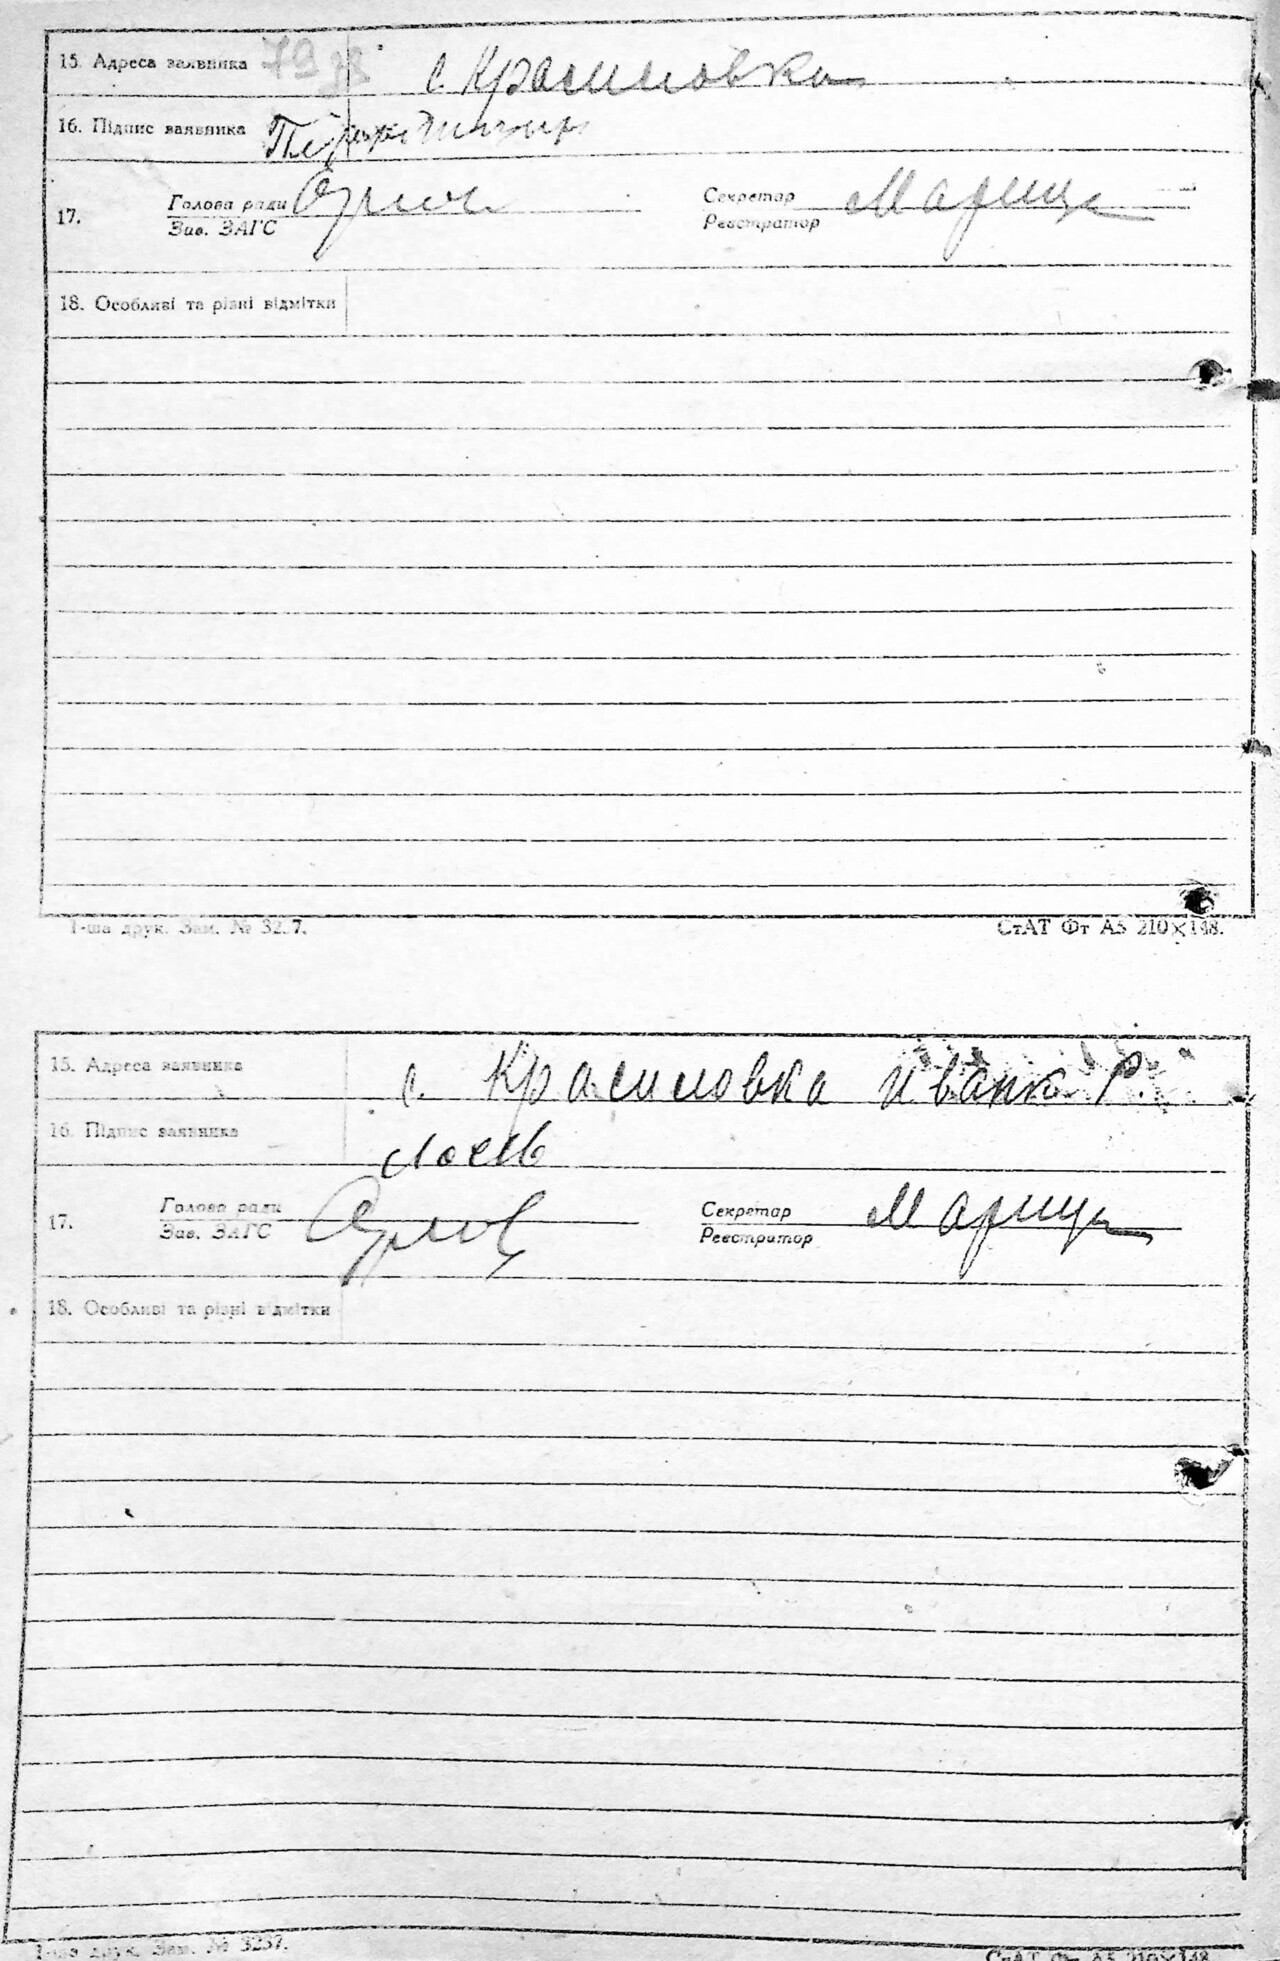 15. Адреса заявника 79 зв с. Красиловка
16. Підпис заявника
17. Голова ради Секретар Марищ
Зав. ЗАГС Реєстратор
18. Особливі та різні відмітки
1-ша друк. Зам. № 32 7. СтАТ Фт А5 210×148.
15. Адреса заявника с. Красиловка Иванк. Р.
16. Підпис заявника
17. Голова ради Секретар Марищ
Зав. ЗАГС Реєстратор
18. Особливі та різні відмітки
1-ша друк. Зам. № 3237. СтАТ Фт А5 210×148